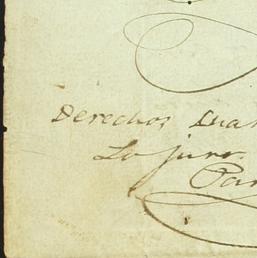 Derechos, Cua
Lo juro.
Par